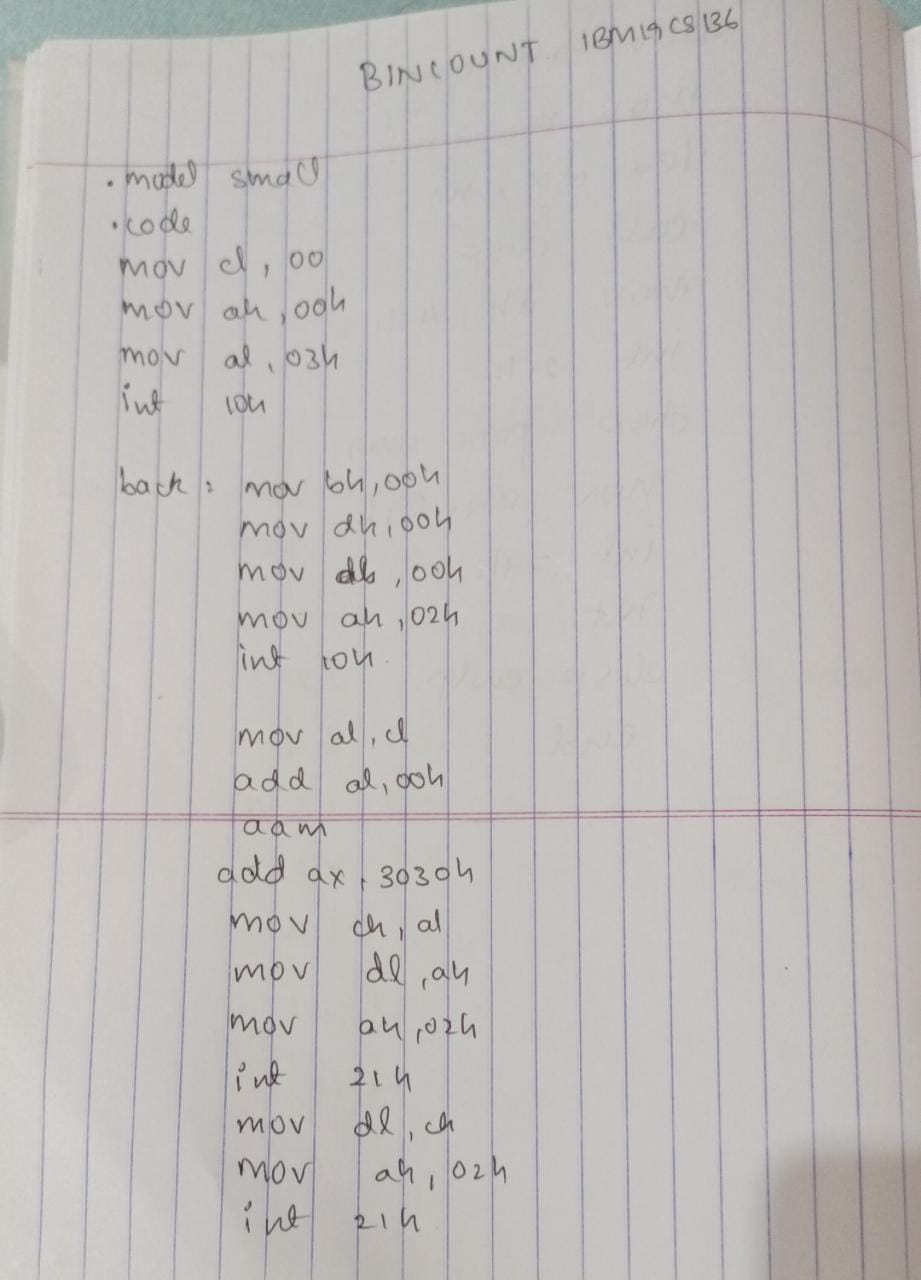 BINCOUNT 1BM19CS136
.model small
.code
mov cl, 00
mov ah, 00h
mov al, 03h
int 10h
back: mov bh, 00h
mov dh, 00h
mov dl, 00h
mov ah, 02h
int 10h
mov al, cl
add al, 00h
aam
add ax, 3030h
mov ch, al
mov dl, ah
mov ah, 02h
int 21h
mov dl, ch
mov ah, 02h
int 21h